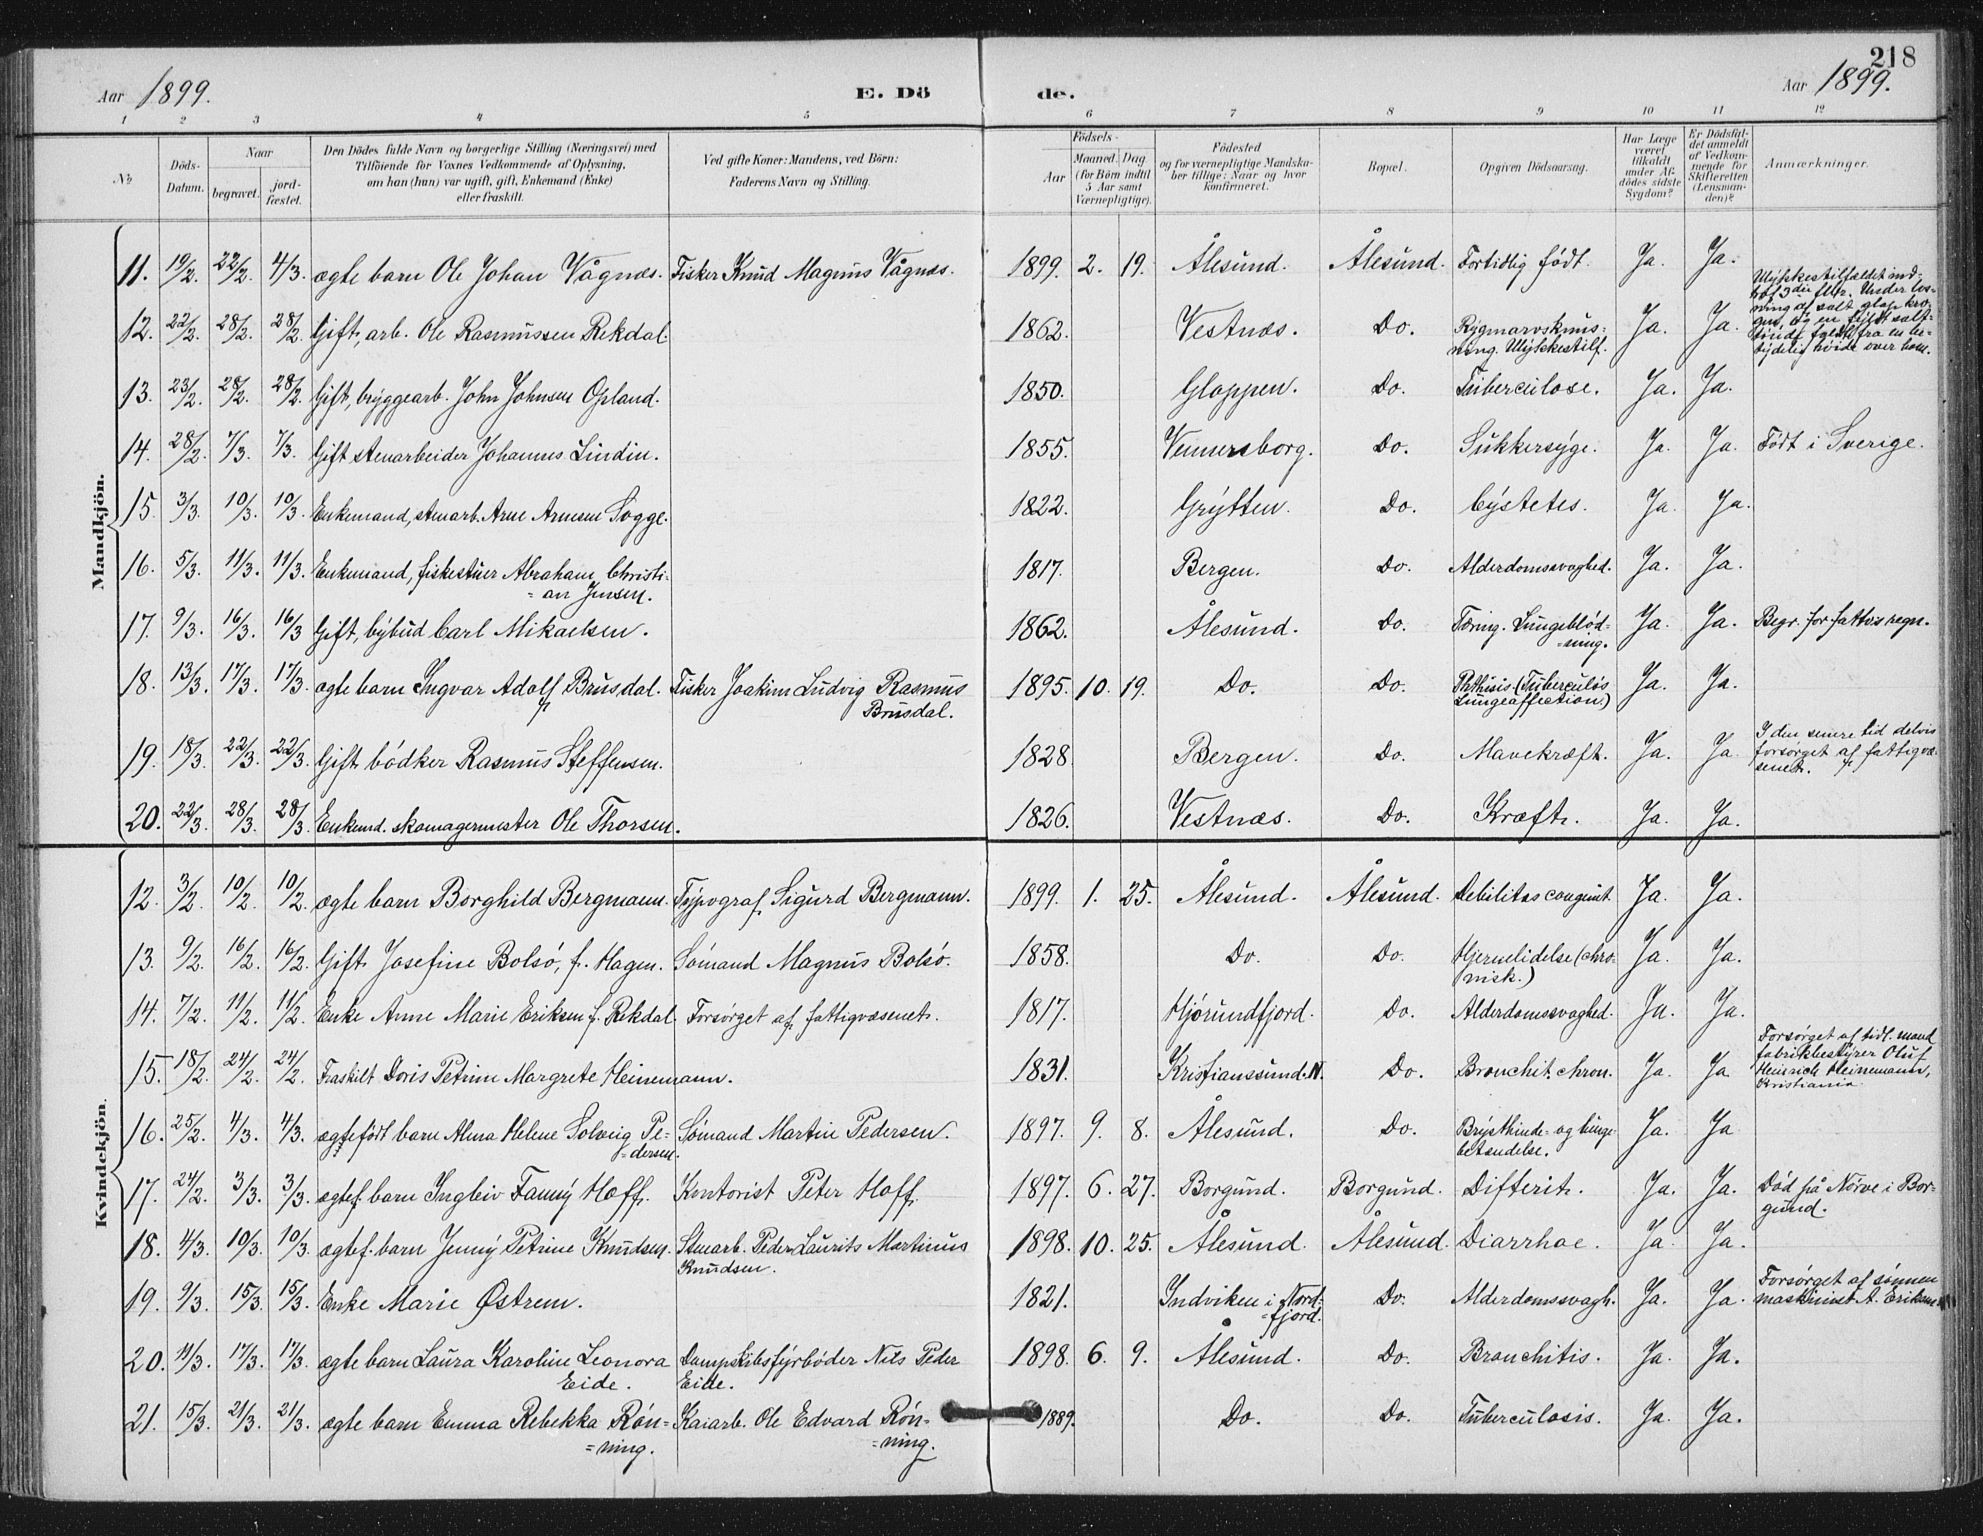 218
Aar 1899. E. Dö de. Aar 1899.
1 2 3 4 5 6 7 8 9 10 11 12
№
Döds-Datum.
Naar
begravet.
jord-fæstet.
Den Dödes fulde Navn og borgerlige Stilling (Næringsvei) med
Tilföiende for Voxnes Vedkommende af Oplysning,
om han (hun) var ugift, gift, Enkemand (Enke)
eller fraskilt.
Ved gifte Koner: Mandens, ved Börn:
Faderens Navn og Stilling.
Födsels-
Aar
Maaned. Dag
(for Börn indtil
5 Aar samt
Værnepligtige).
Födested
og for værnepligtige Mandska-
ber tillige: Naar og hvor
konfirmeret.
Bopæl.
Opgiven Dödsaarsag.
Har Læge
været
tilkaldt
under Af-
dödes sidste
Sygdom?
Er Dödsfal-
det anmeldt
af Vedkom-
mende for
Skifteretten
(Lensman-
den)?
Anmærkninger.
Mandkjön.
11. 19/2. 22/2. 4/3. ægte barn Ole Johan Vågnæs. Fisker Knud Magnus Vågnæs. 1899. 2. 19. Ålesund. Ålesund. Fortidlig født. Ja. Ja.
12. 22/2. 28/2. 28/2. Gift, arb. Ole Rasmussen Rekdal. 1862. Vestnæs. Do. Rygmarvsknus-
ning. Ulykkestilf. Ja. Ja. Ulykkestilfældet ind-
traf 3die fbr. Under los-
ning af salt glap kro-
gen, og en fyldt salt-
tønde faldt fra en be-
tydelig høide over ham.
13. 23/2. 28/2. 28/2. Gift, bryggearb. John Johnsen Opland. 1850. Gloppen. Do. Tuberculose. Ja. Ja.
14. 28/2. 7/3. 7/3. Gift stenarbeider Johannes Lindin. 1855. Vennersborg. Do. Sukkersyge. Ja. Ja. Født i Sverige.
15. 3/3. 10/3. 10/3. Enkemand, stenarb. Arne Arnesen Sogge. 1822. Grytten. Do. Cystetes. Ja. Ja.
16. 5/3. 11/3. 11/3. Enkemand, fiskestuer Abraham Christi-
=an Jensen. 1817. Bergen. Do. Alderdomssvaghed. Ja. Ja.
17. 9/3. 16/3. 16/3 Gift, bybud Carl Mikaelsen. 1862. Ålesund. Do. Tæring. Lungeblød-
=ning. Ja. Ja. Begr. for fattvs regn.
18. 13/3. 17/3. 17/3. ægte barn Ingvar Adolf Brusdal. Fisker Joakim Ludvig Rasmus
Brusdal. 1895. 10. 19. Do. Do. Phthisis (Tuberculøs
Lungeaffection.) Ja. Ja.
19. 18/3. 22/3. 22/3. Gift bødker Rasmus Steffensen. 1828. Bergen. Do. Mavekræft. Ja. Ja. I den senere tid delvis
forsørget af fattigvæ-
senet.
20. 22/3. 28/3. 28/3. Enkemd. skomagermester Ole Thorsen. 1826. Vestnæs. Do. Kræft. Ja. Ja.
Kvindekjön.
12. 3/2. 10/2. 10/2. ægte barn Borghild Bergmann. Typograf Sigurd Bergmann. 1899. 1. 25. Ålesund. Ålesund. Debilitas congenit. Ja. Ja.
13. 9/2. 16/2. 16/2. Gift Josefine Bolsø, f. Hagen. Sømand Magnus Bolsø. 1858. Do. Do. Hjernelidelse (chro-
nisk.) Ja. Ja.
14. 7/2. 11/2. 11/2. Enke Anne Marie Eriksen f. Rekdal Forsørget af fattigvæsenet. 1817. Hjørundfjord. Do. Alderdomssvaghed. Ja. Ja.
15. 18/2. 24/2. 24/2. Fraskilt Doris Petrine Margrete Heinemann. 1831. Kristianssund.N. Do. Bronchit. chron. Ja. Ja Forsørget af tidl. mand
fabrikbestyrer Oluf
Heinrich Heinemann,
Kristiania.
16. 25/2. 4/3. 4/3. ægtefødt barn Alma Helene Solveig Pe-
=dersen. Sømand Martin Pedersen. 1897. 9. 8. Ålesund. Do. Brysthinde- og lunge-
betændelse. Ja. Ja
17. 24/2. 3/3. 3/3. ægtef. barn Ingleiv Fanny Hoff. Kontorist Peter Hoff. 1897. 6. 27. Borgund. Borgund. Difterit. Ja. Ja. Død på Nørve i Bor-
gund.
18. 4/3. 10/3. 10/3. ægtef. barn Jenny Petrine Knudsen. Stenarb. Peder Laurits Martinus
Knudsen. 1898. 10. 25. Ålesund. Ålesund. Diarrhoe. Ja. Ja.
19. 9/3. 15/3. 15/3. Enke Marie Østrem. 1821. Indviken i Nord-
=fjord. Do. Alderdomssvagh. Ja. Ja. Forsørget af sønnen
maskinist A. Eriksen
20. 11/3. 17/3. 17/3. ægte barn Laura Karoline Leonora
Eide. Dampskibsfyrbøder Nils Peder
Eide. 1898. 6. 9. Ålesund. Do. Bronchitis. Ja. Ja.
21. 15/3. 21/3. 21/3. ægte barn Emma Rebekka Røn-
=ning. Kaiarb. Ole Edvard Røn-
=ning. 1889. Do. Do. Tuberculosis. Ja. Ja.